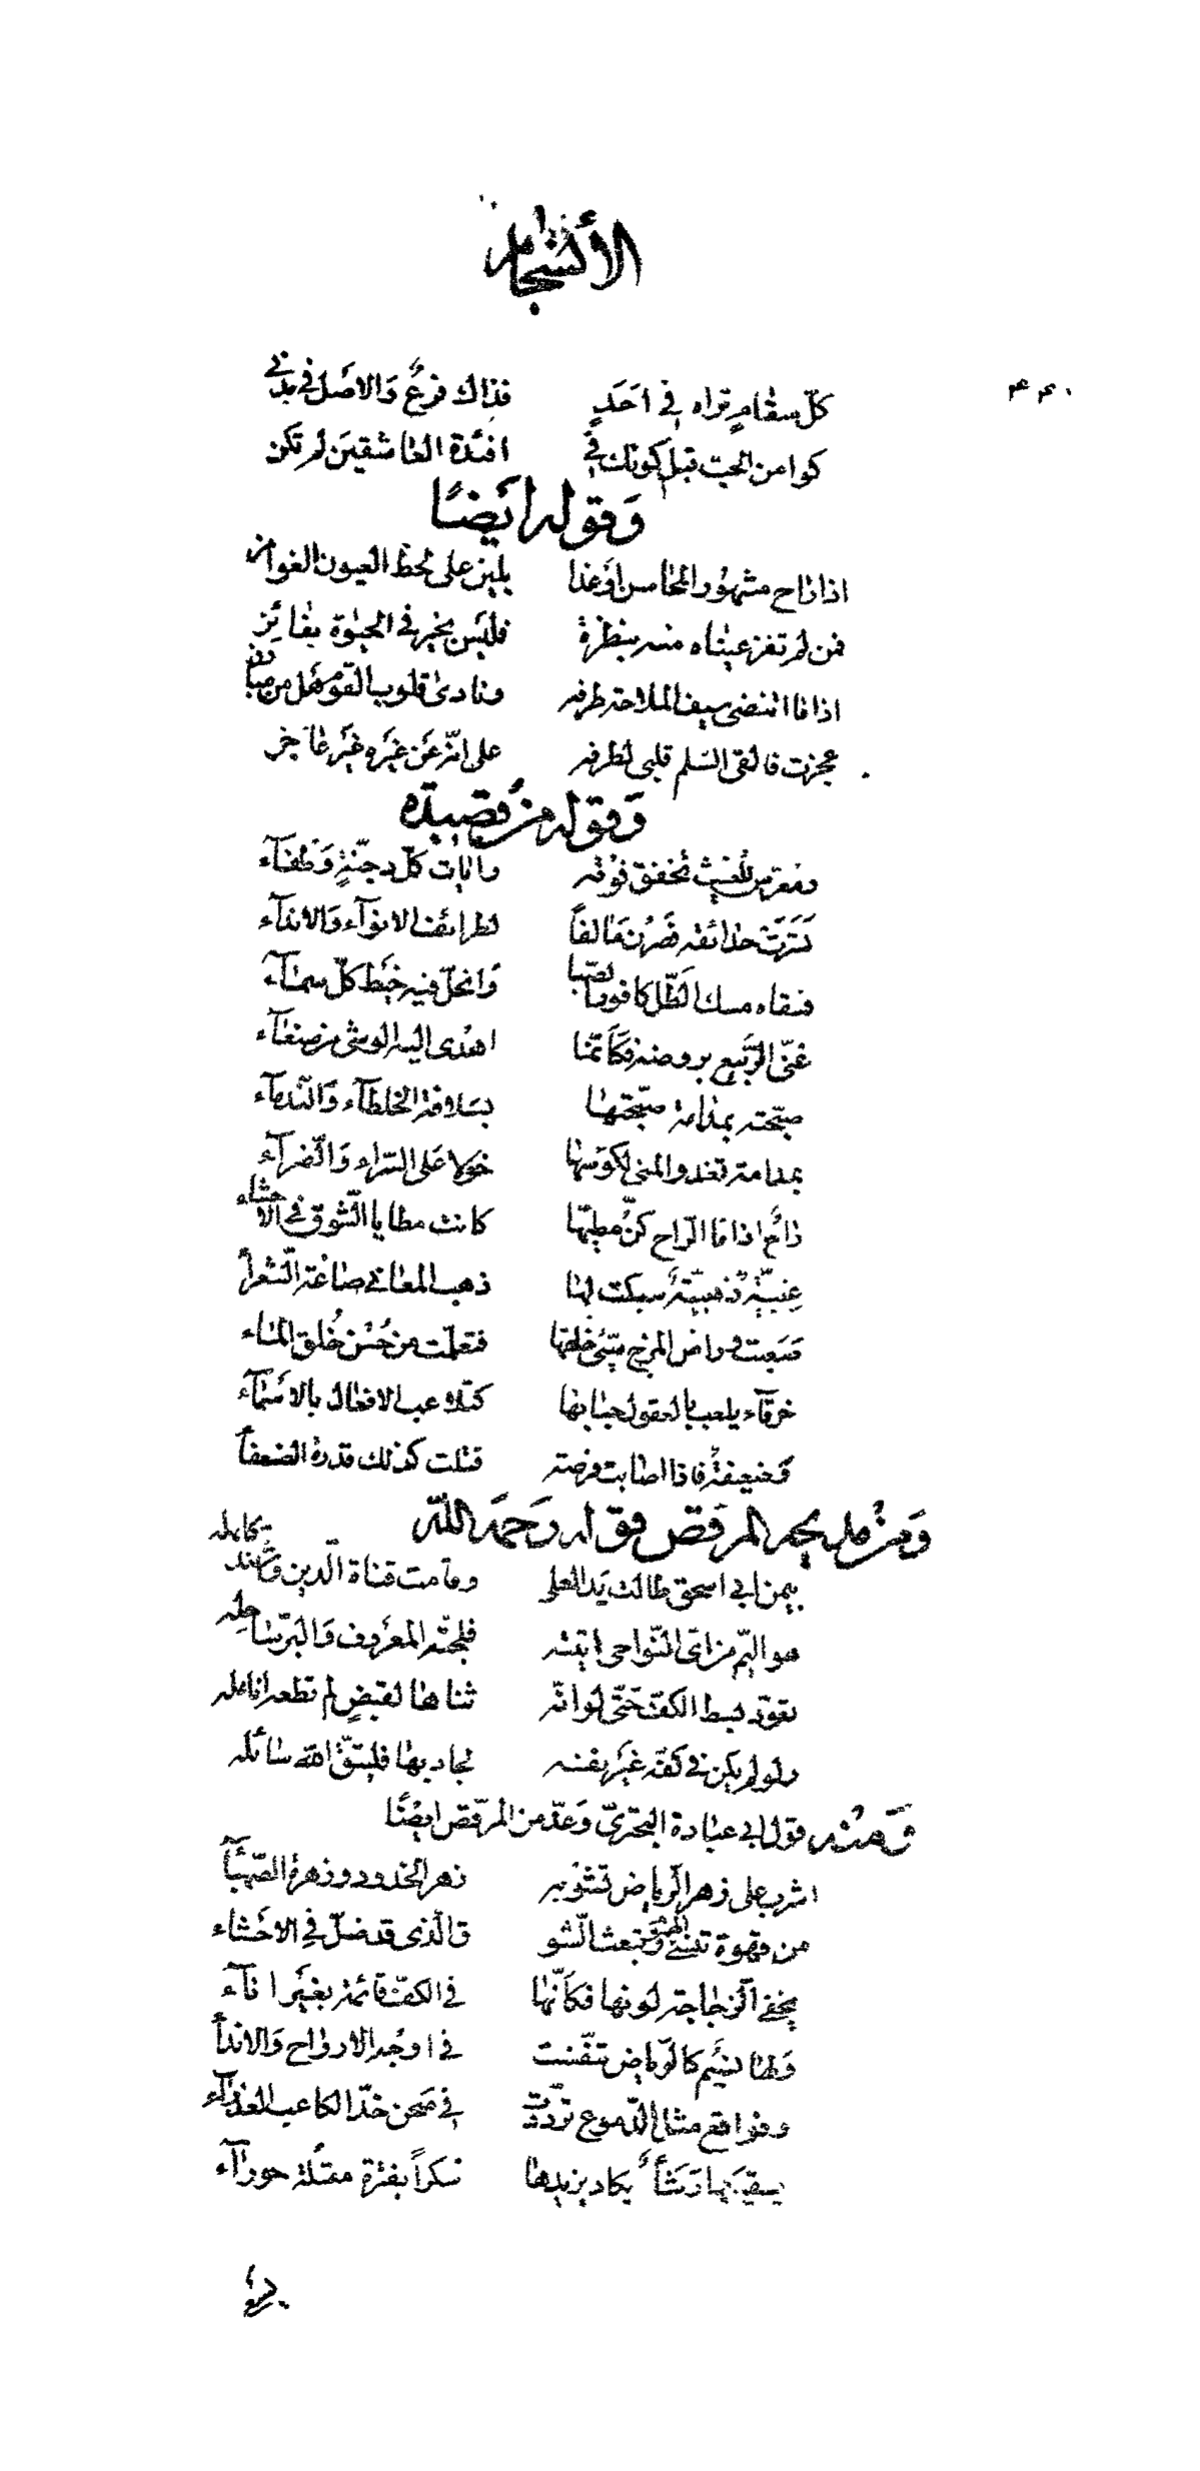 الأنسجام
٤٤٠
كلّ سقام تراه في احَدٍ فذاك فرعٌ وَالاصَل في بدني
كوامن الحبّ قبل كونك في افئدة العاشقين لم تكن
وَقوله ايَضًا
اذا راح مشهور المحاسن اوَ غدا يلين على لحظ العيون الغوامز
فمن لم تفز عيناه منه بنظرة فليَس بخير في الحيوة بفائِز
اذا ما انتضى سيف الملاحة طرفه ونادى قلوب القوم هل من مبارز
عجزت فالقى السّلم قلبي لطرفه على انّه عَن غيَره غيَر عاجز
وَقوله من قصيدة
ومعرّس للغيث تخفق فوقه رايات كلّ دجنّةٍ وَطفآء
نشرت حدائقه فصرن مآلفًا لطرائف الانوآء وَالاندآء
فسقاه مسك الطّل كافور الصّبا وَانحلّ فيه خيَط كلّ سمآء
غنّى الرّبيع بروضه فكأنّما اهدى اليه الوشى من صنعآء
صبّحته بمدامة صبّحتها بسلافة الخلطآء وَالنّدمآء
بمدامة تغدو المنى لكؤسها خولا على السّراء وَالضّرآء
راح اذا ما الرّاح كنّ مطيّها كانت مطايا الشّوق في الاحشاء
عنبيّة ذهبيّة سبكت لها ذهب المعاني صاغة الشّعرآ
صَعبت وراض المزج سيّئ خلقها فتعلّمت من حُسْن خُلق الماء
خرقآء يلعب بالعقول حبابها كتلاعب الافعال بالاسَمآء
وَضعيفة فاذا اصابت فرصة قتلت كذلك قدرة الضعفآ
وَمن مليح المرقص قوله رَحمَه اللّه
بيمن ابي اسحق طالت يَد العلى وقامت قناة الدّين وَاشتد كاهله
هو اليمّ من اىّ النّواحى اتيته فلجّته المعَروف وَالبرّ ساحله
تعوّد بسط الكفّ حَتّى لو انّه ثناها لقبضٍ لم تطعه انامله
ولو لم يكن في كفّه غيَر نفسه لجاد بها فليتّق اللّه سائله
وَمنه قول ابي عبادة البحتريّ وَعدّ من المرقّص ايضًا
اشرب على زهر الرّياض تشوبه زهر الخدود وزهرة الصّهبآ
من قهوة تنسي الهموم وتبعث الشّو ق الّذى قد ضلّ في الاحَشاء
يخفى الزّجاجة لونها فكأنّها في الكفّ قائمة بغيَر انآء
وَلها نسيم كالرّياض تنفّست في اوجُه الارواح وَالاندآ
وفواقع مثل الدّموع تردّدت في صَحن خدّ الكاعب العذرآء
يسقيكها رَشَأ يكاد يزيدها سكرًا بفترة مقلة حورآء